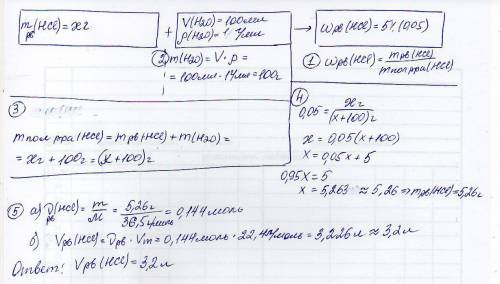 m рв (HCl) = x г + V(H2O) = 100 мл → ωрв(HCl) = 5% (0,05)
ρ(H2O) = 1 г/мл
② m(H2O) = V · ρ =
= 100мл · 1г/мл = 100г
① ωрв(HCl) = mрв(HCl) / mпол р-ра(HCl)
③
mпол р-ра(HCl) = mрв(HCl) + m(H2O) =
= xг + 100г = (x+100)г
④
0,05 = xг / (x+100)г
x = 0,05(x+100)
x = 0,05x + 5
0,95x = 5
x = 5,263 ≈ 5,26 ⇒ mрв(HCl) = 5,26г
⑤ а) νрв(HCl) = m/M = 5,26г / 36,5г/моль = 0,144моль
б) Vрв(HCl) = νрв · Vm = 0,144моль · 22,4л/моль = 3,226л ≈ 3,2л
Ответ: Vрв(HCl) = 3,2л